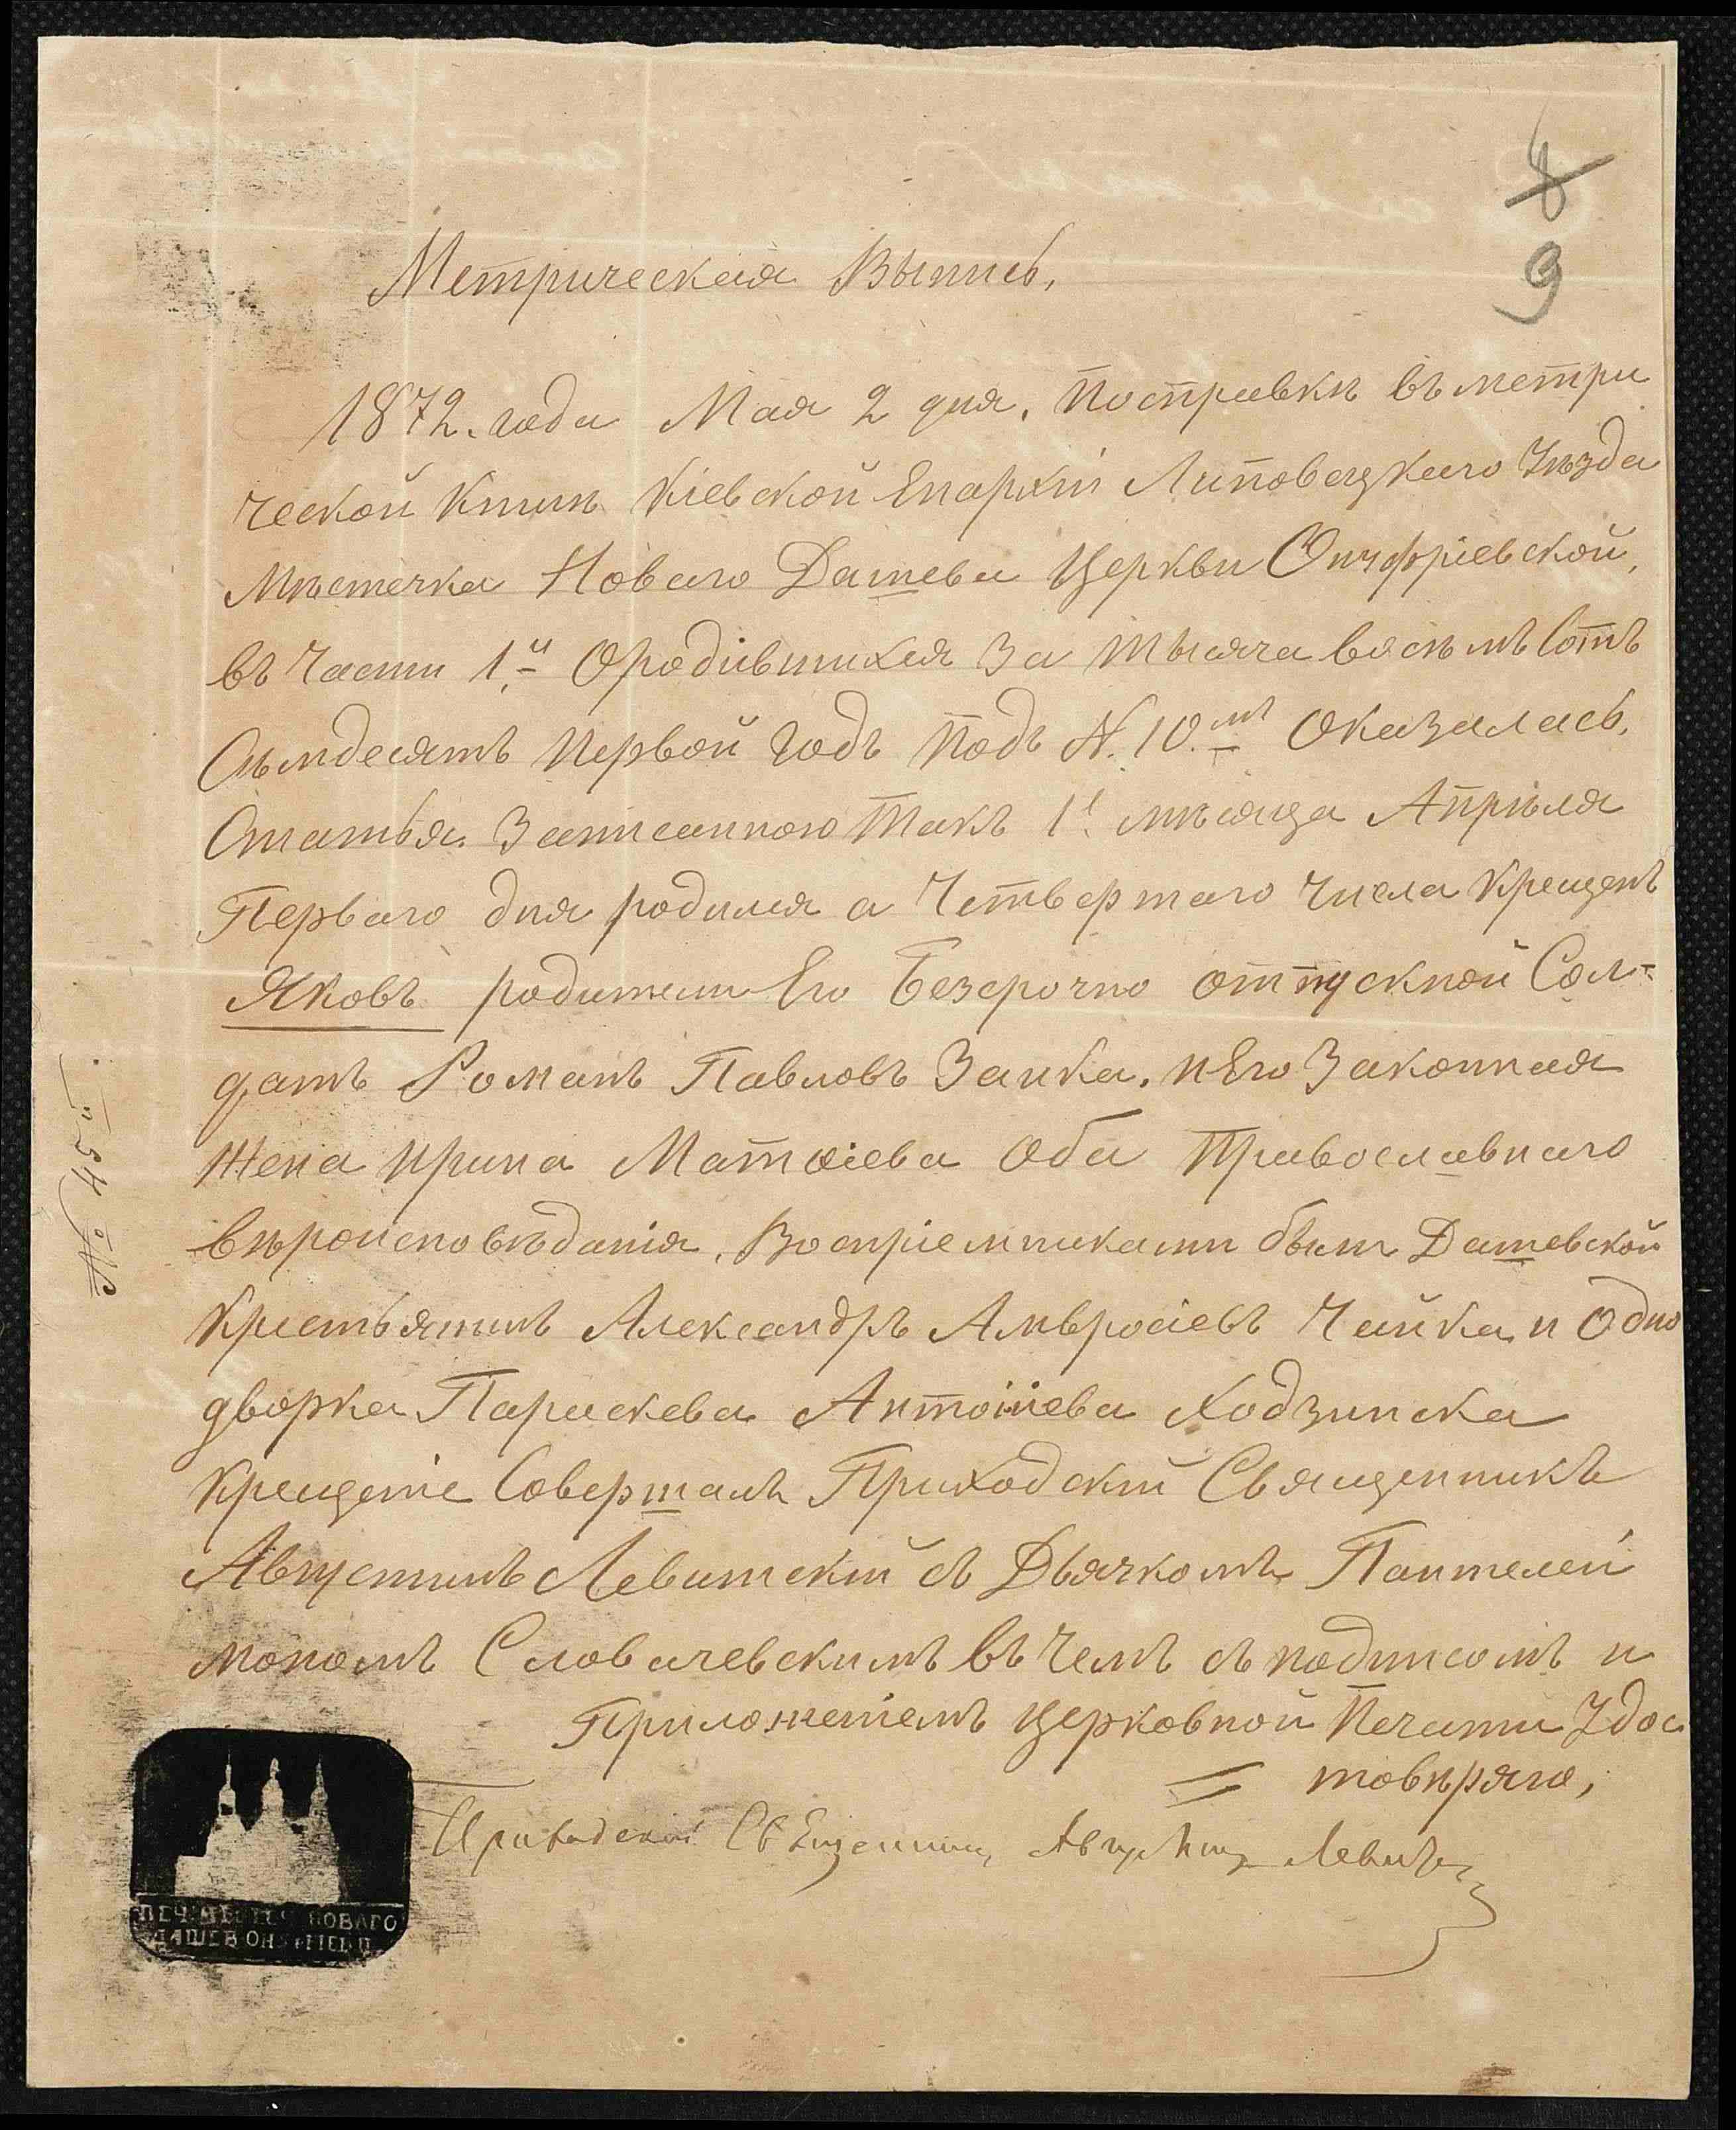 8
9
Метрическая Выпись,
1872. года Мая 2 дня. Посправки въ метри
ческой Книги Кіевской Епархіи Липовецкаго Уѣзда
Мѣстечка Новаго Дашева Церкви Онуфріевской,
въ Части 1.й Ородившихся За тысяча восѣмъ Сотъ
Семдесятъ Первой Годъ Подъ N. 10.мъ Оказалась.
Статья. Записанною Такъ 1. мѣсяца Апрѣля
Перваго дня родился а Четвертаго Числа Крещенъ
Яковъ родители Его Безсрочно отпускной Сол-
датъ Романъ Павловъ Заика. и Его Законная
Жена Ирина Матѳіева Оба Православнаго
вѣроисповѣданія. Воспріемниками были Дашевской
Крестьянинъ Александръ Амвросіевъ Чайка и Одно
дворка Параскева Антоніева Ходзинска
Крещеніе Совершалъ Приходскій Священникъ
Августинъ Левитскій съ Дьячкомъ Пантелей
мономъ Словачевскимъ въ Чемъ съ подписомъ и
Приложеніемъ Церковной Печати Удос
= товѣряю,
Приходскій Священникъ Августинъ Левитскій
№ 54й
ПЕЧ. МѢСТЕЧ НОВАГО
ДАШЕВ ОНУФРІЕВ Ц